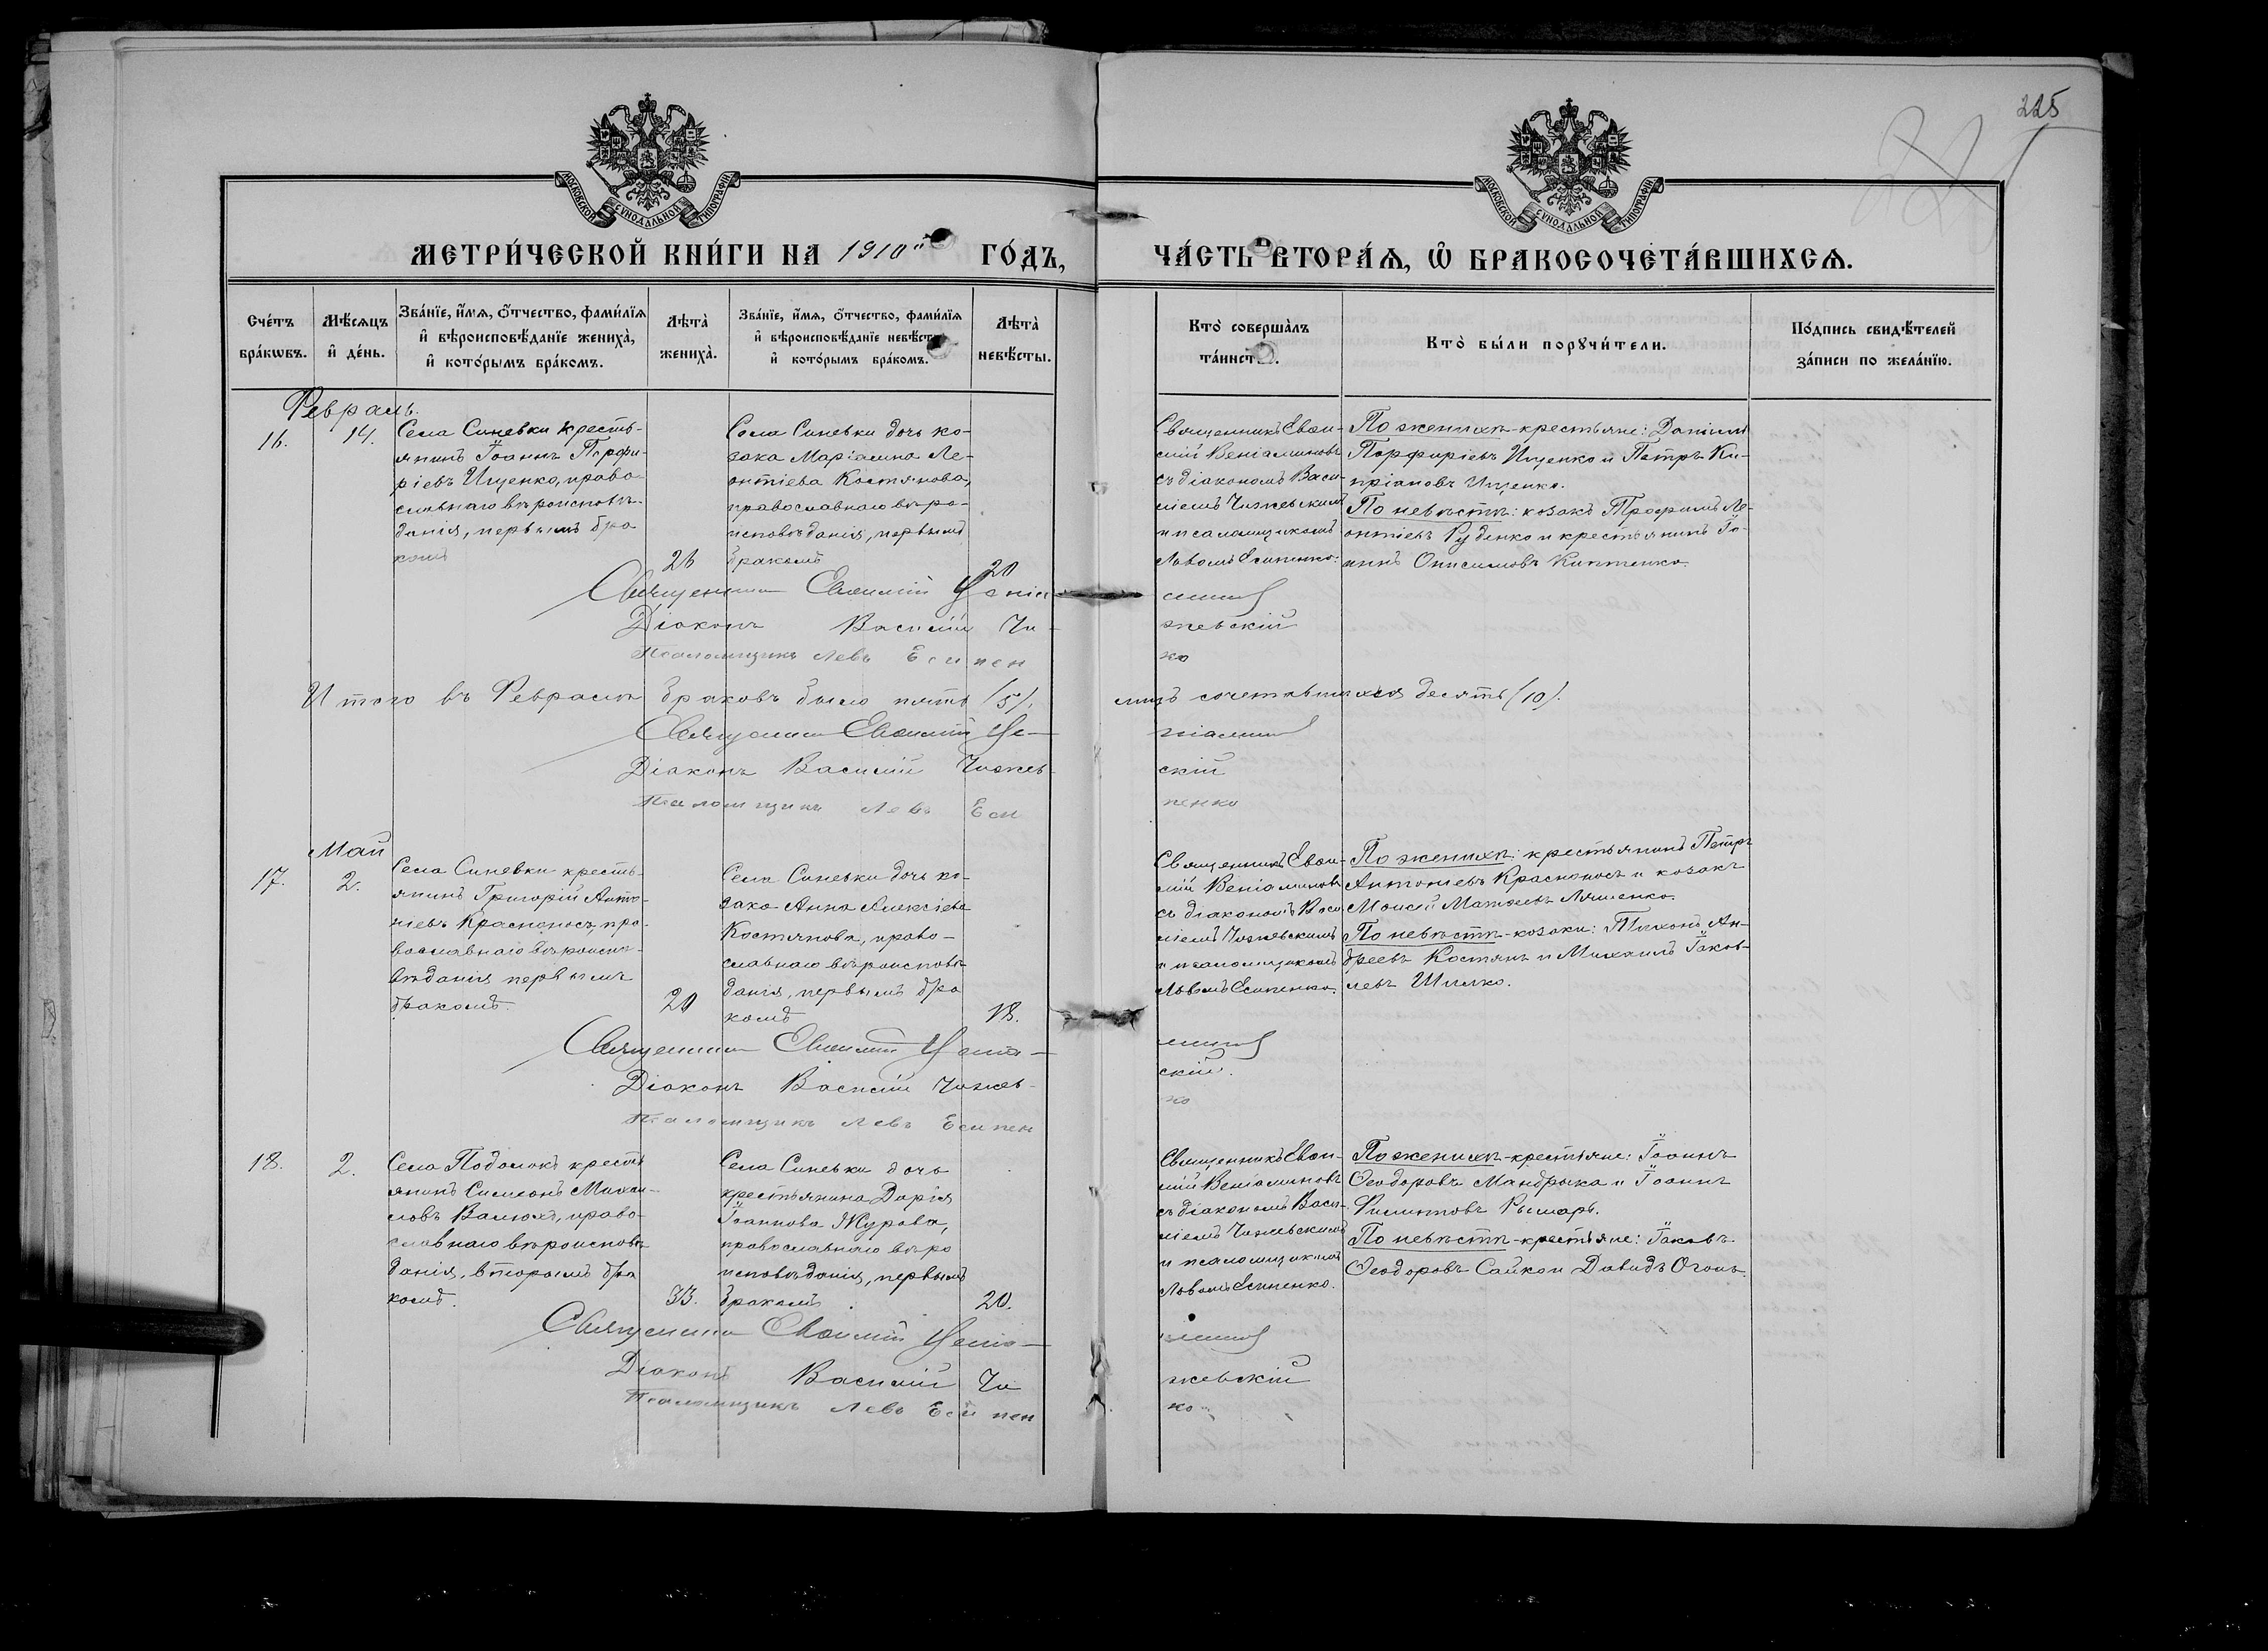 225
МОСКОВСКОЙ СѴНОДАЛЬНОЙ ТИПОГРАФІИ
МОСКОВСКОЙ СѴНОДАЛЬНОЙ ТИПОГРАФІИ
МЕТРИ́ЧЕСКОЙ КНИ́ГИ НА 1910й ГО́ДЪ,
ЧА́СТЬ ВТОРА́Ѧ, Ѽ БРАКОСОЧЕТА́ВШИХСѦ.
Сче́тъ бра́кѡвъ.
Мѣ́сѧцъ и҆ де́нь.
Зва́нїе, и҆́мѧ, ѻ҆́тчество, фами́лїѧ
и҆ вѣроисповѣ́данїе жениха̀,
и҆ кото́рымъ бра́комъ.
Лѣта̀ жениха̀.
Зва́нїе, и҆́мѧ, ѻ҆́тчество, фами́лїѧ
и҆ вѣроисповѣ́данїе невѣ́сты
и҆ кото́рымъ бра́комъ.
Лѣта̀ невѣ́сты.
Кто̀ соверша̀лъ
та́инст
Кто̀ бы́ли порꙋчи́тели.
По́дпись свидѣ́телей
за́писи по жела́нїю.
Февраль.
16.
14.
Села Синевки кресть-
янинъ Іоаннъ Порфи-
ріевъ Ищенко, право-
славнаго вѣроисповѣ-
данія, первымъ бра
комъ
26
Села Синевки дочь ко-
зака Маріамна Ле-
онтіева Костянова,
православнаго вѣро-
исповѣданія, первымъ
бракомъ
20
Священникъ Евѳи-
мій Веніаминовъ
съ діакономъ Васи-
ліемъ Чижевскимъ
и псаломщикомъ
Львомъ Есипенко.
По женихѣ - крестьяне: Даніилъ
Порфиріевъ Ищенко и Петръ Ки-
пріановъ Ищенко.
По невѣстѣ: козакъ Трофимъ Ле-
онтіевъ Руденко и крестьянинъ Іо-
аннъ Онисимовъ Киптенко.
Священникъ Евѳимій Веніаминовъ
Діаконъ Василій Чижевскій
Псаломщикъ Левъ Есипенко
Итого въ Февралѣ браковъ было пять (5). лицъ сочетавшихся десять (10).
Священникъ Евѳимій Веніаминовъ
Діаконъ Василій Чижевскій
Псаломщикъ Левъ Есипенко
Май
17.
2.
Села Синевки кресть-
янинъ Григорій Анто-
ніевъ Красноносъ, пра-
вославнаго вѣроиспо-
вѣданія первымъ
бракомъ.
20
Села Синевки дочь ко-
зака Анна Алексіева
Костянова, право-
славнаго вѣроисповѣ-
данія, первымъ бра
комъ
18.
Священникъ Евѳи-
мій Веніаминовъ
съ діакономъ Васи
ліемъ Чижевскимъ
и псаломщикомъ
Львомъ Есипенко.
По женихѣ: крестьянинъ Петръ
Антоніевъ Красноносъ и козакъ
Моисей Матѳеевъ Ляшенко.
По невѣстѣ - козаки: Тихонъ Ан-
дреевъ Костянъ и Михаилъ Іаков-
левъ Шилко.
Священникъ Евѳимій Веніаминовъ
Діаконъ Василій Чижевскій.
Псаломщикъ Левъ Есипенко
18.
2.
Села Подолокъ кресть
янинъ Симеонъ Михаи-
ловъ Валюхъ, право-
славнаго вѣроисповѣ-
данія, вторымъ бра
комъ.
33.
Села Синевки дочь
крестьянина Дарія
Іоаннова Журова,
православнаго вѣро
исповѣданія, первымъ
бракомъ.
20.
Священникъ Евѳи-
мій Веніаминовъ
съ діакономъ Васи-
ліемъ Чижевскимъ
и псаломщикомъ
Львомъ Есипенко.
По женихѣ - крестьяне: Іоаннъ
Ѳеодоровъ Мандрыка и Іоаннъ
Филиповъ Рымарь.
По невѣстѣ - крестьяне: Іаковъ
Ѳеодоровъ Сайко и Давидъ Огонь.
Священникъ Евѳимій Веніаминовъ
Діаконъ Василій Чижевскій
Псаломщикъ Левъ Есипенко